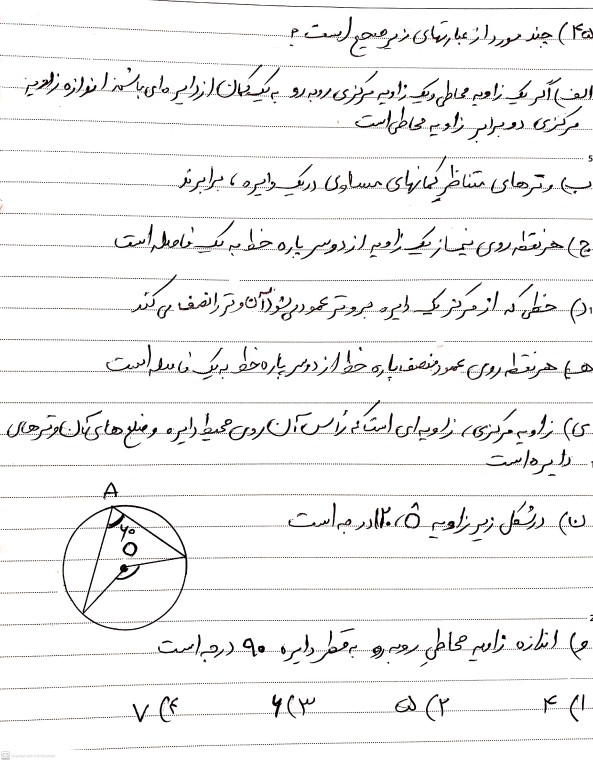 ۴۵) چند مورد از عبارتهای زیر صحیح است؟
الف) اگر یک زاویه محاطی و یک زاویه مرکزی روبه رو به یک کمان از دایره ای باشند اندازه زاویه
مرکزی دو برابر زاویه محاطی است
ب) وترهای متناظر کمانهای مساوی در یک دایره، برابرند
ج) هر نقطه روی نیمساز یک زاویه از دو سر پاره خط به یک فاصله است
د) خطی که از مرکز یک دایره بر وتر عمود می شود آن وتر را نصف می کند
هـ) هر نقطه روی عمود منصف پاره خط از دو سر پاره خط به یک فاصله است
ی) زاویه مرکزی، زاویه ای است که رأس آن روی محیط دایره و ضلع های آن وترهای
دایره است
ن) در شکل زیر زاویه Ô، ۱۲۰ درجه است
A
۶۰
O
و) اندازه زاویه محاطی روبه رو به قطر دایره ۹۰ درجه است
۱) ۴ ۲) ۵ ۳) ۶ ۴) ۷